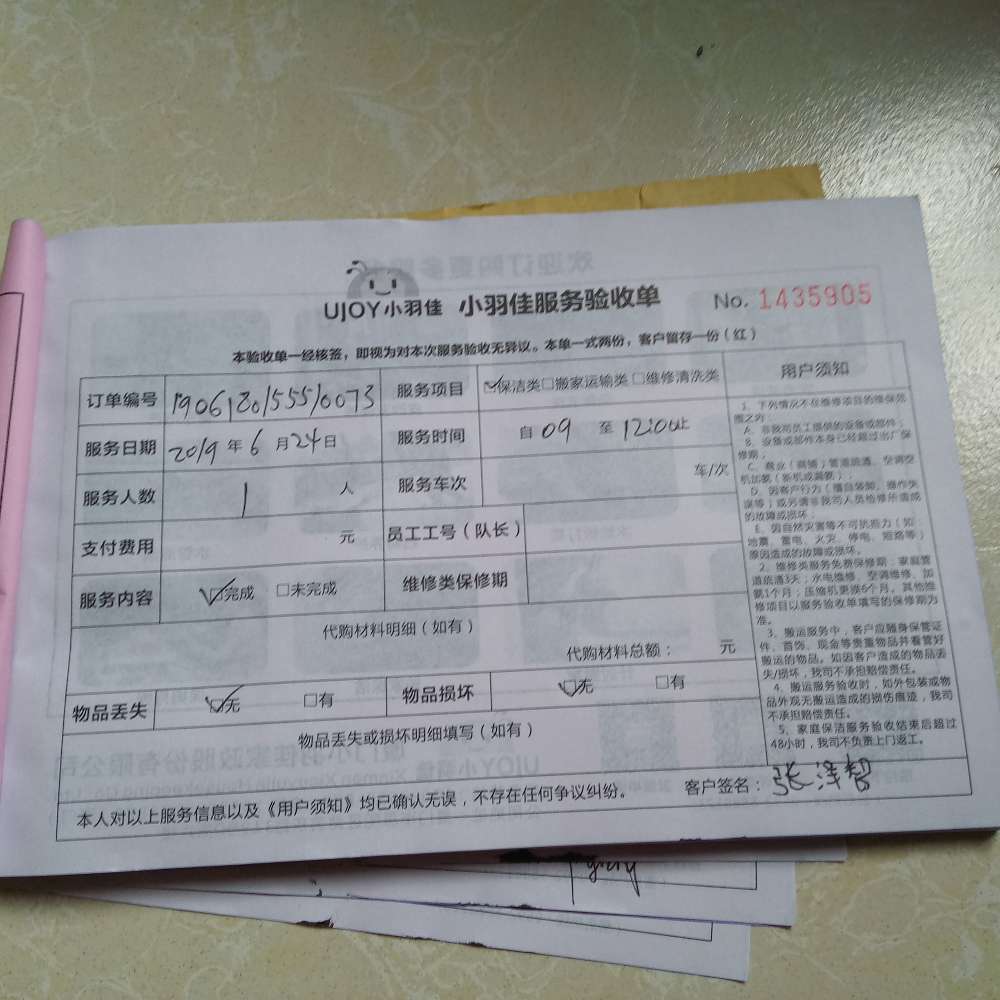 UJOY小羽佳 小羽佳服务验收单 No. 1435905
本验收单一经核签，即视为对本次服务验收无异议。本单一式两份，客户留存一份（红）
订单编号 服务项目 ☑保洁类□搬家运输类□维修清洗类 用户须知
服务日期 2019年6月24日 服务时间 自09至12:0止
服务人数 1 人 服务车次 车/次
支付费用 元 员工工号（队长）
服务内容 ☑完成 □未完成 维修类保修期
代购材料明细（如有）
代购材料总额： 元
物品丢失 ☑无 □有 物品损坏 ☑无 □有
物品丢失或损坏明细填写（如有）
1、下列情况不在维修项目的维保范
围之内：
A、非我司员工提供的设备或部件；
B、设备或部件本身已经超过出厂保
修期；
C、营业（商铺）管道疏通、空调空
机加氨（新机或漏氨）；
D、因客户行为（擅自装卸、操作失
误等）或另请非我司人员检修所造成
的故障或损坏；
E、因自然灾害等不可抗拒力（如：
地震、雷电、火灾、停电、短路等）
原因造成的故障或损坏。
2、维修类服务免费保修期：家庭管
道疏通3天；水电维修、空调维修、加
氨1个月；压缩机更换6个月。其他维
修项目以服务验收单填写的保修期为
准。
3、搬运服务中，客户应随身保管证
件、首饰、现金等贵重物品并看管好
搬运的物品。如因客户造成的物品丢
失/损坏，我司不承担赔偿责任。
4、搬运服务验收时，如外包装或物
品外观无搬运造成的损伤痕迹，我司
不承担赔偿责任。
5、家庭保洁服务验收结束后超过
48小时，我司不负责上门返工。
本人对以上服务信息以及《用户须知》均已确认无误，不存在任何争议纠纷。 客户签名：张泽智